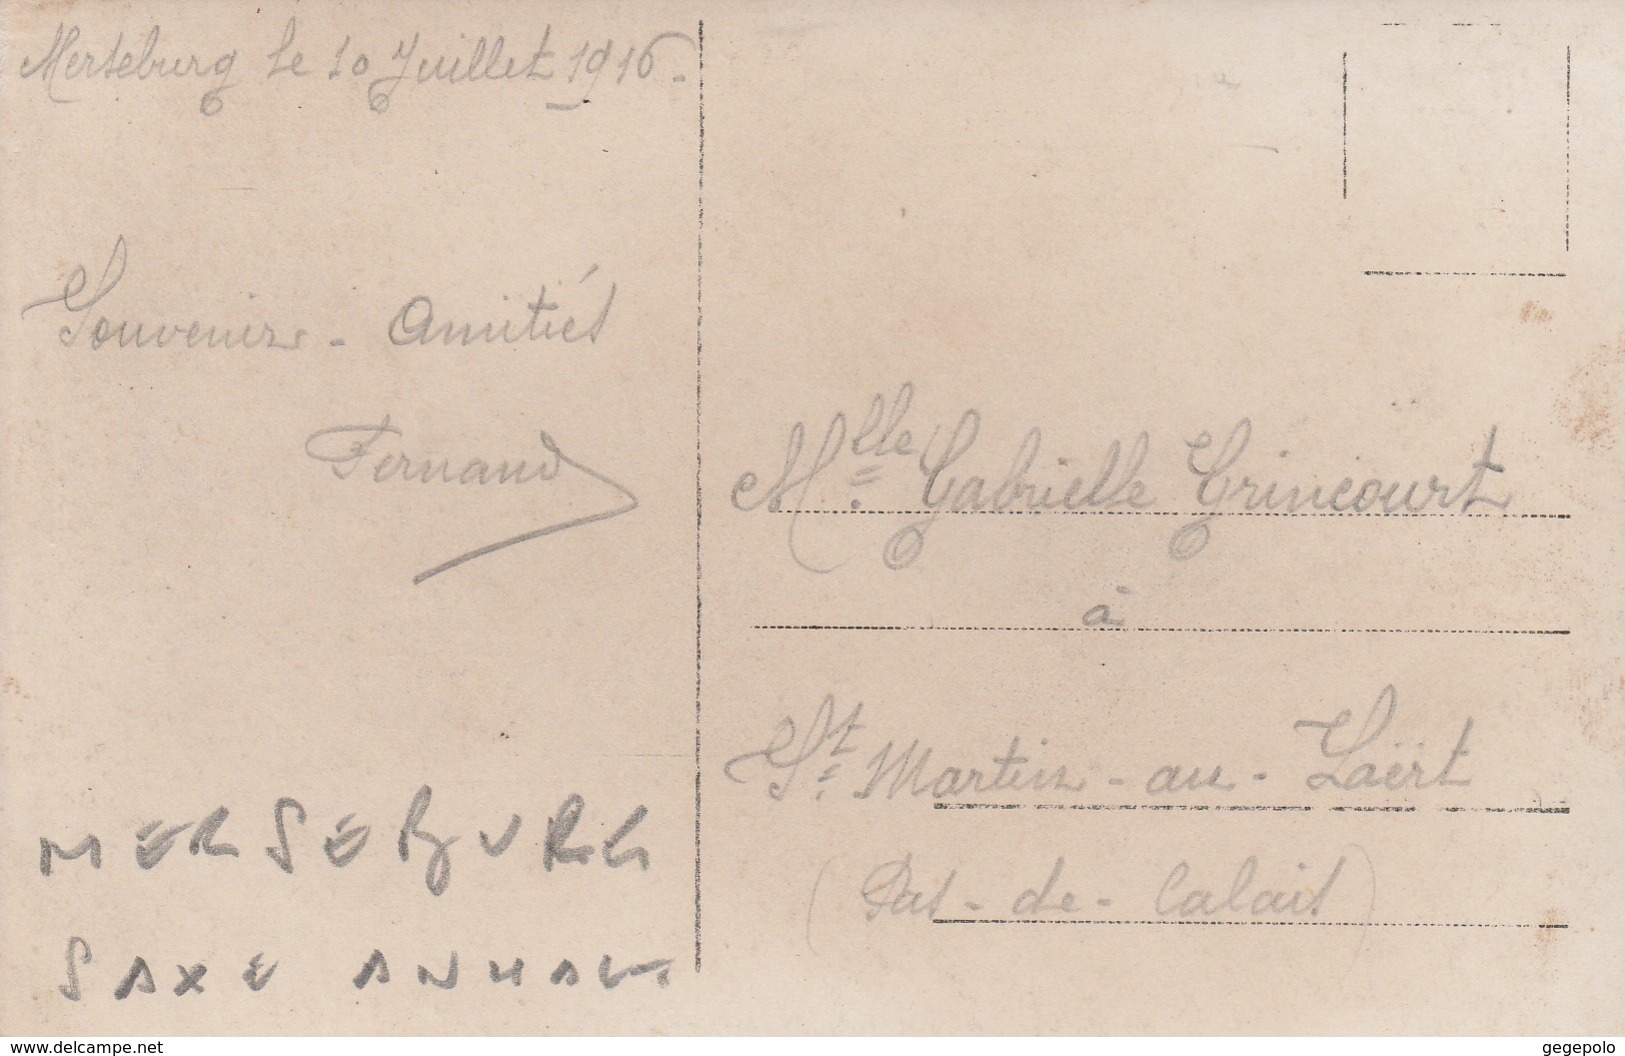 Merseburg le 10 Juillet 1916.
Souvenir - Amitiés
Fernand
MERSEBURG
SAXE ANHALT
Mlle. Gabrielle Grincourt
à
St. Martin-au-Laërt
(Pas-de-Calais)
www.delcampe.net
gegepolo